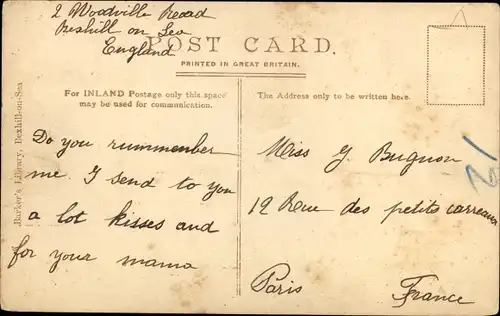 2 Woodville Road
Bexhill on Sea
England
POST CARD.
PRINTED IN GREAT BRITAIN.
For INLAND Postage only this space
may be used for communication.
The Address only to be written here.
Barker's Library, Bexhill-on-Sea
Do you rummenber
me. I send to you
a lot kisses and
for your mama
Miss G. Bugnon
12 Rue des petits carreaux
Paris
France